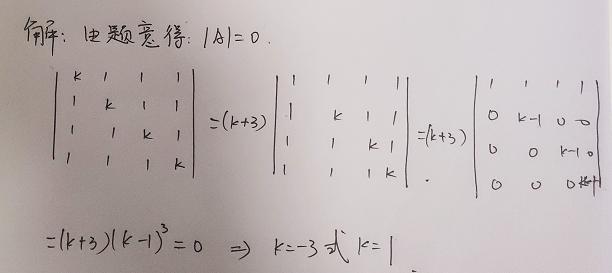 解：由题意得：|A|=0.
| k 1 1 1 | =(k+3) | 1 1 1 1 | =(k+3) | 1 1 1 1 |
| 1 k 1 1 | | 1 k 1 1 | | 0 k-1 0 0 |
| 1 1 k 1 | | 1 1 k 1 | | 0 0 k-1 0 |
| 1 1 1 k | | 1 1 1 k | | 0 0 0 k-1 |
=(k+3)(k-1)³=0 ⇒ k=-3 或 k=1